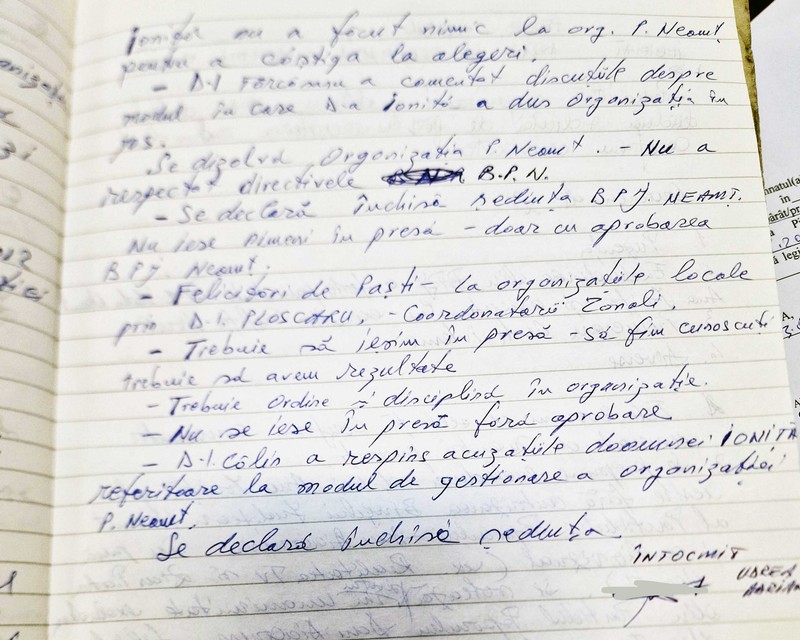 Ioniță nu a făcut nimic la org. P. Neamț
pentru a câștiga la alegeri.
- D-l a comentat discuțiile despre
modul în care D-a Ioniță a dus Organizația în
jos.
Se dizolvă Organizația P. Neamț. - Nu a
respectat directivele B.P.N.
- Se declară închisă ședința BPJ. NEAMȚ.
Nu iese nimeni în presă - doar cu aprobarea
BPJ. Neamț;
- Felicitări de Paști - la organizațiile locale
prin D-l. PLOSCARU, - Coordonatorii Zonali.
- Trebuie să ieșim în presă - Să fim cunoscuți
trebuie să avem rezultate
- Trebuie Ordine și disciplină în organizație.
- Nu se iese în presă fără aprobare
- D-l. Călin a respins acuzațiile doamnei IONIȚĂ
referitoare la modul de gestionare a organizației
P. Neamț,
Se declară închisă ședința
ÎNTOCMIT
UDREA
ADRIAN